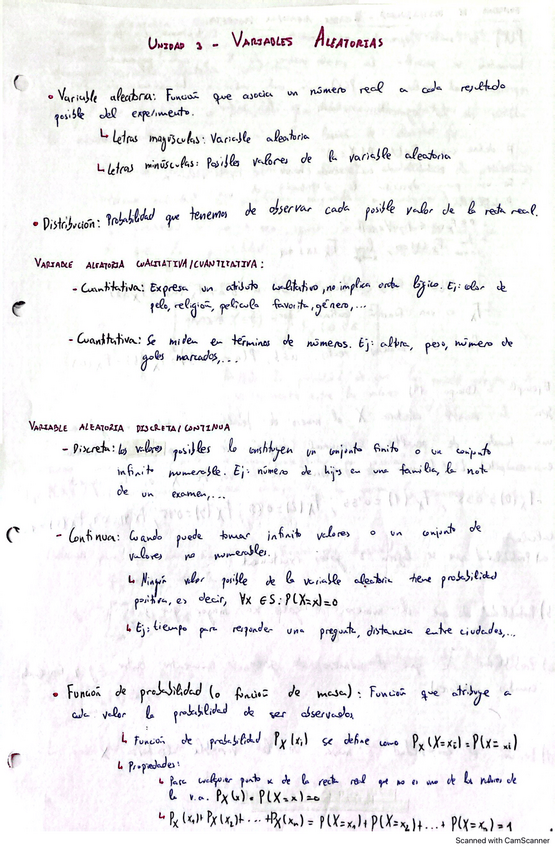 UNIDAD 3 - VARIABLES ALEATORIAS
• Variable aleatoria: Función que asocia un número real a cada resultado
posible del experimento.
↳ Letras mayúsculas: Variable aleatoria
↳ Letras minúsculas: Posibles valores de la variable aleatoria
• Distribución: Probabilidad que tenemos de observar cada posible valor de la recta real.
VARIABLE ALEATORIA CUALITATIVA/CUANTITATIVA:
- Cuantitativa: Expresa un atributo cualitativo, no implica orden lógico. Ej: color de
pelo, religión, película favorita, género,...
- Cuantitativa: Se miden en términos de números. Ej: altura, peso, número de
goles marcados,...
VARIABLE ALEATORIA DISCRETA/CONTINUA
- Discreta: Los valores posibles lo constituyen un conjunto finito o un conjunto
infinito numerable. Ej: número de hijos en una familia, la nota
de un examen,...
- Continua: Cuando puede tomar infinito valores o un conjunto de
valores no numerables.
↳ Ningún valor posible de la variable aleatoria tiene probabilidad
positiva, es decir, ∀x ∈ S: P(X=x)=0
↳ Ej: tiempo para responder una pregunta, distancia entre ciudades,...
• Función de probabilidad (o función de masa): Función que atribuye a
cada valor la probabilidad de ser observados
↳ Función de probabilidad Px(xi) se define como Px(X=xi) = P(X=xi)
↳ Propiedades:
↳ Para cualquier punto x de la recta real que no es uno de los valores de
la v.a. Px(x) = P(X=x)=0
↳ Px(x1)+Px(x2)+...+Px(xn) = P(X=x1)+P(X=x2)+...+P(X=xn)=1
Scanned with CamScanner